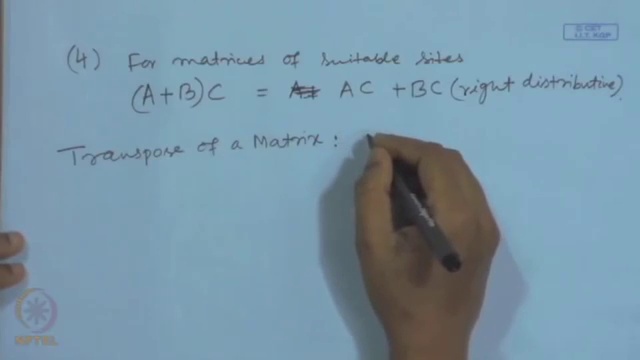 © CET
I.I.T. KGP
(4) For matrices of suitable sites
(A+B)C = AC + BC (right distributive)
Transpose of a Matrix :
NPTEL